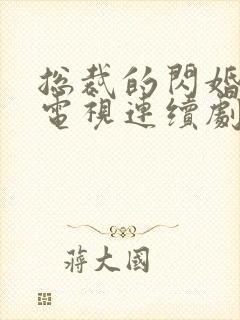 总裁的閃婚
電視連續劇
蔣大國